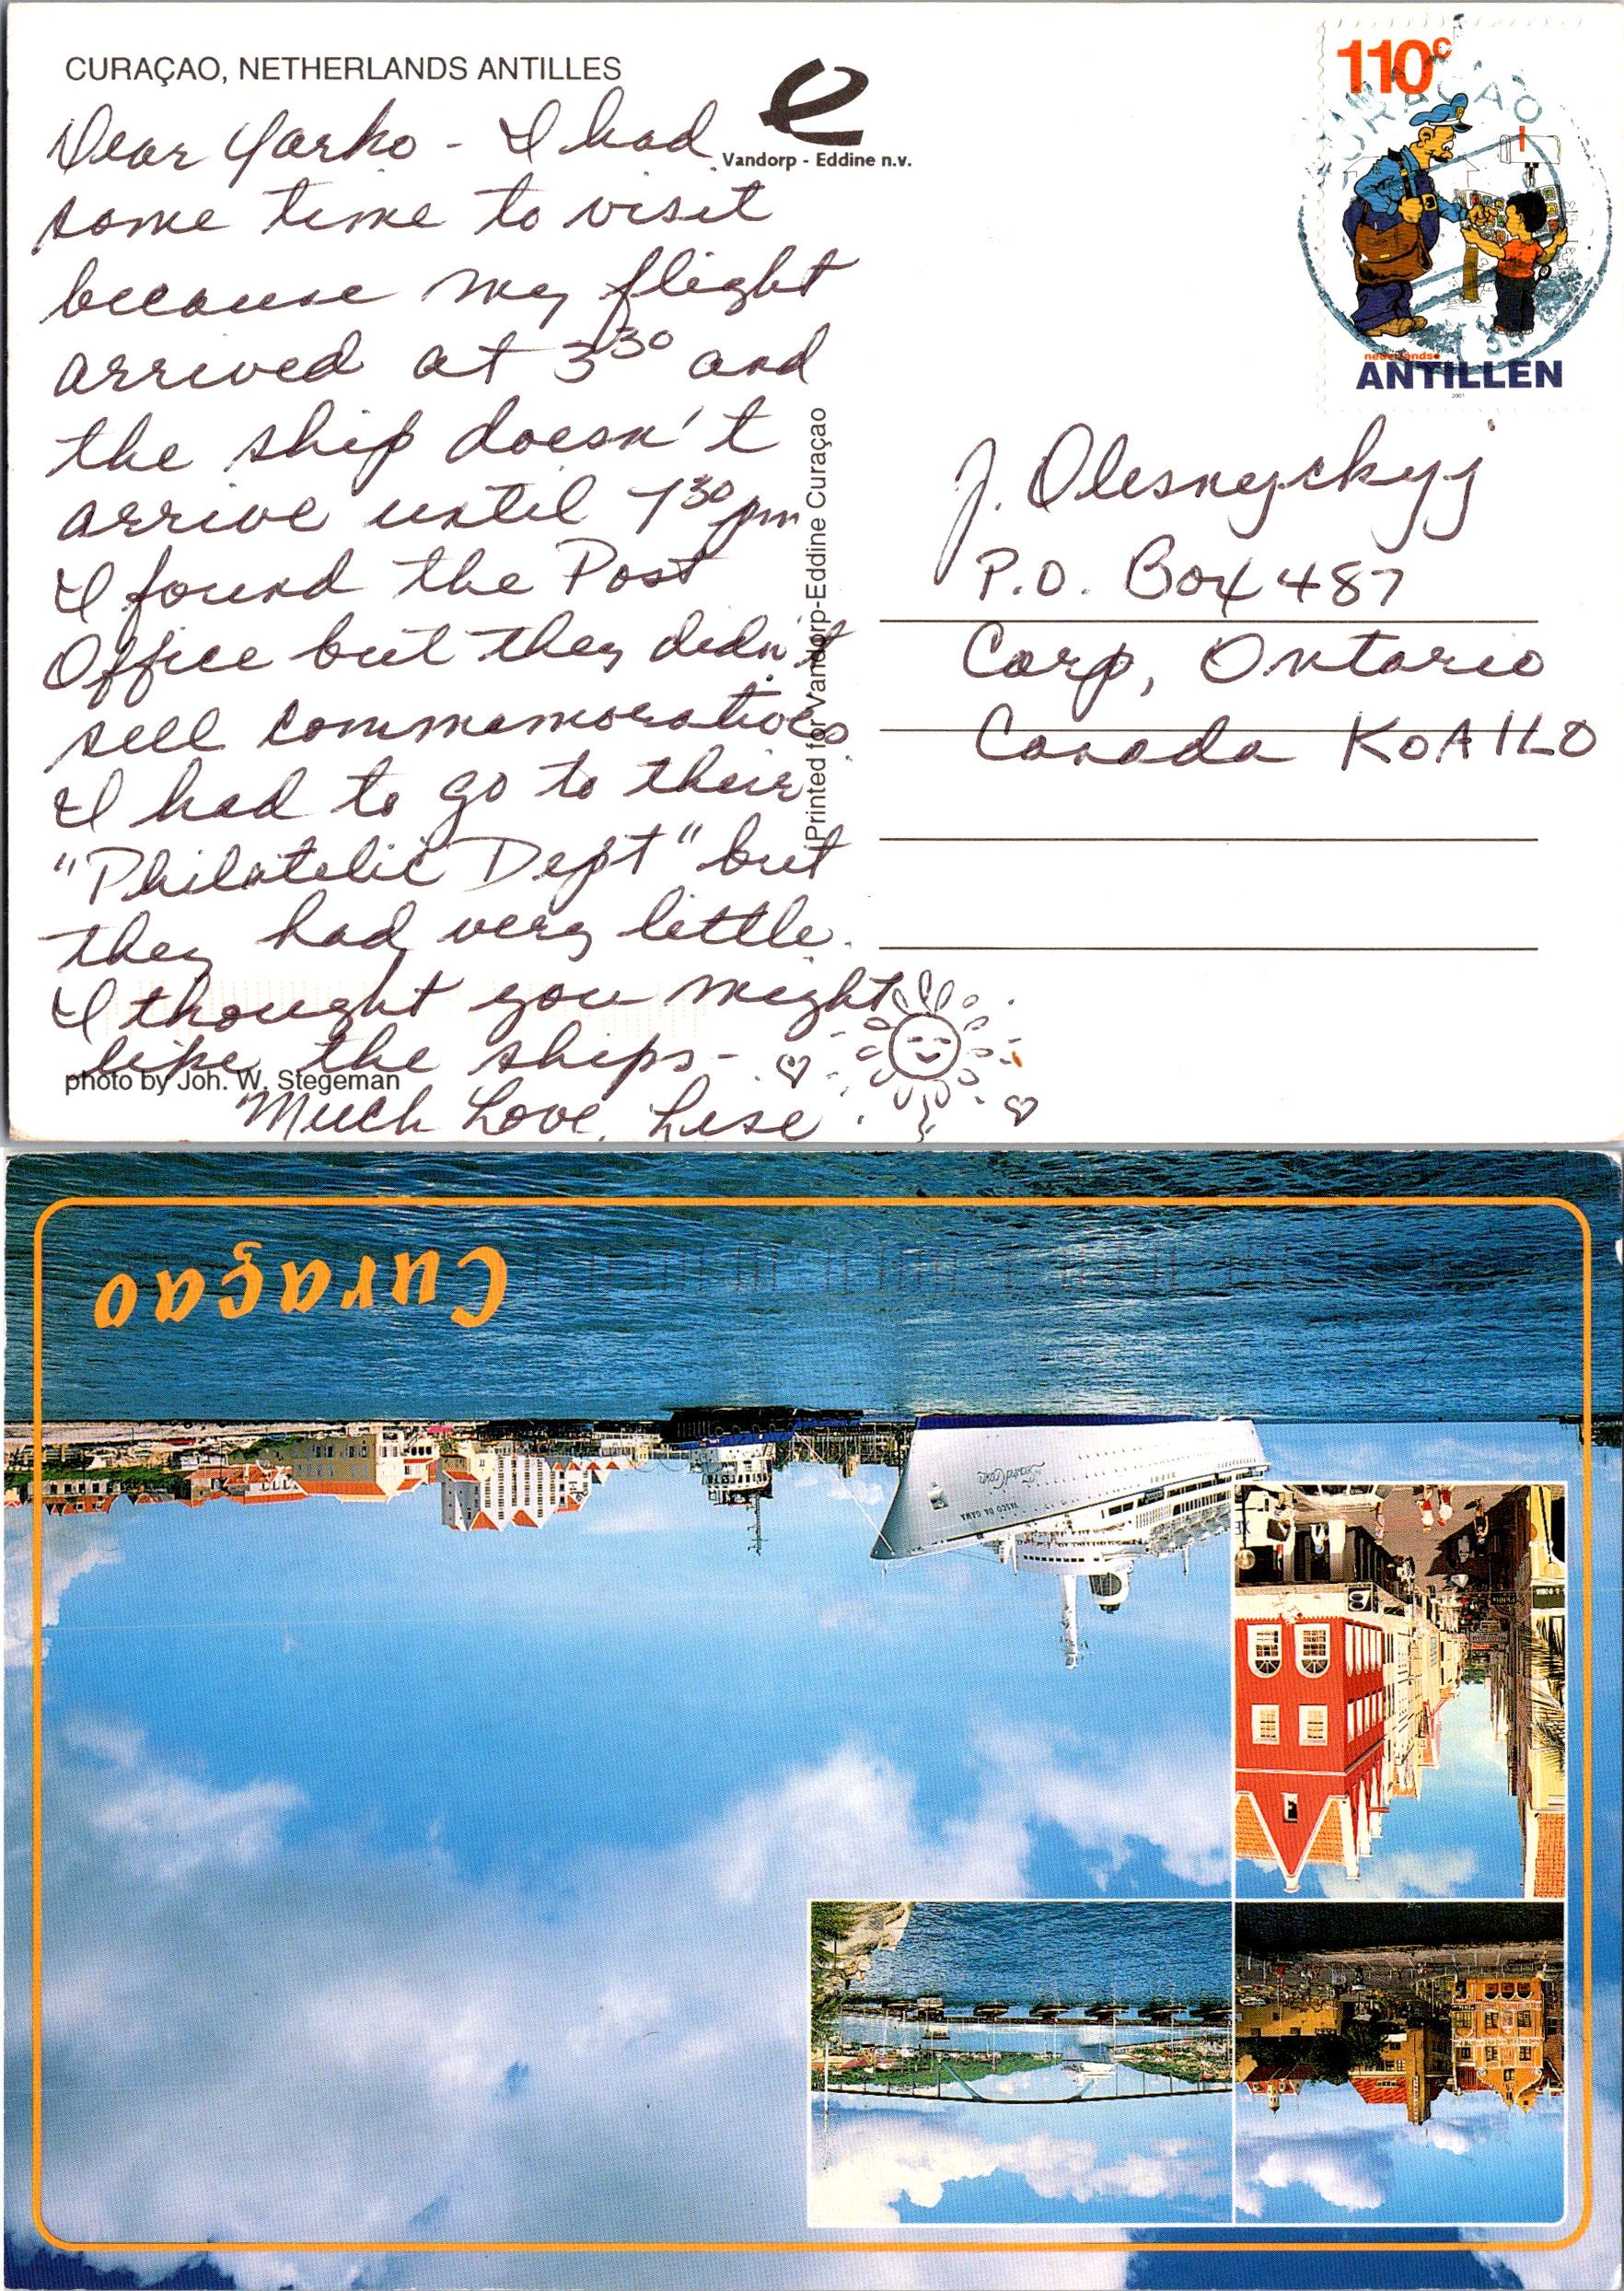 CURAÇAO, NETHERLANDS ANTILLES
Vandorp - Eddine n.v.
Dear Yarko - I had
some time to visit
because my flight
arrived at 3³⁰ and
the ship doesn't
arrive until 7³⁰ pm
I found the Post
Office but they didn't
sell commemoratives
I had to go to their
"Philatelic Dept" but
they had very little.
I thought you might
like the ships-
Much Love, Lise
photo by Joh. W. Stegeman
Printed for Vandorp-Eddine Curaçao
110c
CURAÇAO
nederlandse
ANTILLEN
2001
J. Olesnyckyj
P.O. Box 487
Carp, Ontario
Canada K0A 1L0
Curaçao
VASCO DA GAMA